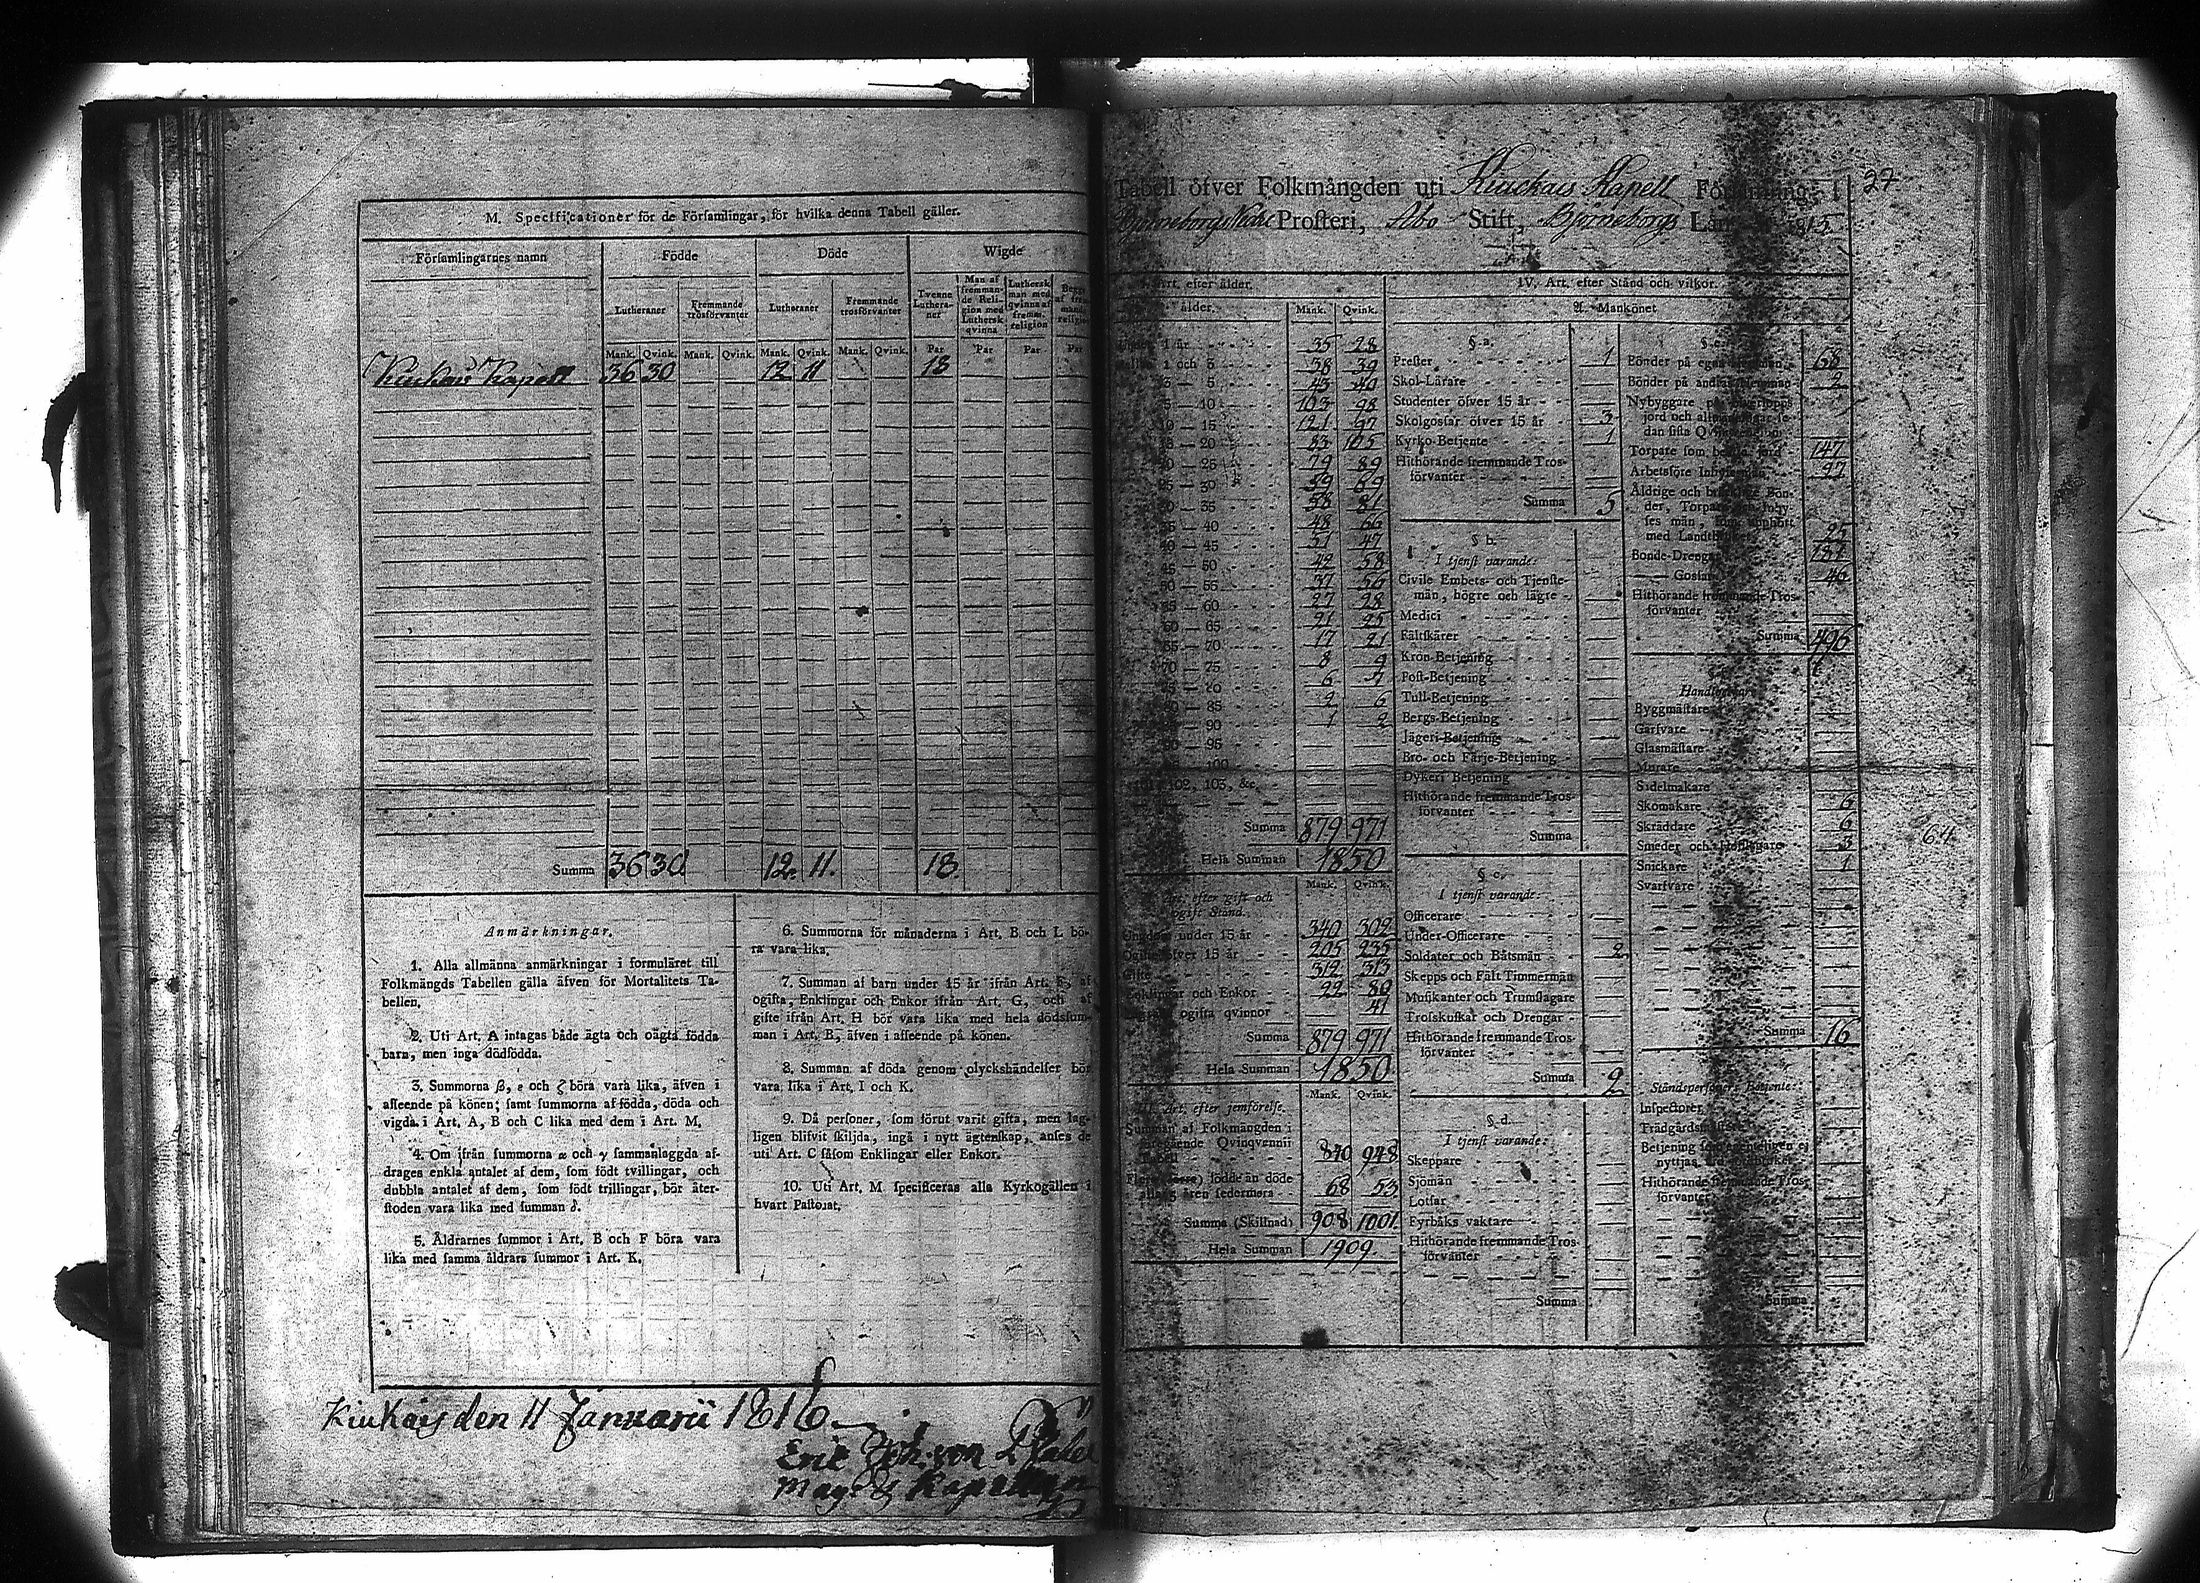 M. Specificationer för de Församlingar, för hvilka denna Tabell gäller.
Församlingarnes namn
Födde
Döde
Wigde
Lutheraner
Fremmande trosförvanter
Lutheraner
Fremmande trosförvanter
Tvenne Lutheraner
Man af fremmande Religion med Luthersk qvinna
Luthersk man med qvinna af fremm. religion
Mank. Qvink. Mank. Qvink. Mank. Qvink. Mank. Qvink. Par Par Par Par
Kiukais Kapell 36 30 12 11 18
Summa 36 30 12. 11. 18
Anmärkningar.
1. Alla allmänna anmärkningar i formuläret till
Folkmängds Tabellen gälla äfven för Mortalitets Ta-
bellen.
2. Uti Art. A intagas både ägta och oägta födda
barn, men inga dödfödda.
3. Summorna β, ε och ζ böra vara lika, äfven i
afseende på könen; samt summorna af födda, döda och
vigda i Art. A, B och C lika med dem i Art. M.
4. Om ifrån summorna α och γ sammanlaggda af-
drages enkla antalet af dem, som födt tvillingar, och
dubbla antalet af dem, som födt trillingar, bör åter-
stoden vara lika med summan δ.
5. Åldrarnes summor i Art. B och F böra vara
lika med samma åldrars summor i Art. K.
6. Summorna för månaderna i Art. B och L bö-
ra vara lika.
7. Summan af barn under 15 år ifrån Art. F, af
ogifta, Enklingar och Enkor ifrån Art. G, och af
gifte ifrån Art. H bör vara lika med hela dödssum-
man i Art. B, äfven i afseende på könen.
8. Summan af döda genom olyckshändelser bör
vara lika i Art. I och K.
9. Då personer, som förut varit gifta, men lag-
ligen blifvit skiljda, ingå i nytt ägtenskap, anses de
uti Art. C såsom Enklingar eller Enkor.
10. Uti Art. M specificeras alla Kyrkogällen i
hvart Pastorat.
Kiukais den 11 Januarii 1816
Eric Joh. von
Mag. & Kapellan
27
Tabell öfver Folkmängden uti Kiuckais Kapell
Björneborgs Prosteri, Åbo Stift, Björneborgs Län 1815
Art. efter ålder.
ålder. Mank. Qvink.
1 år 35 28
1 och 3 38 39
3 — 5 43 40
5 — 10 103 98
10 — 15 121 97
15 — 20 83 105
20 — 25 79 89
25 — 30 59 69
30 — 35 58 81
35 — 40 48 66
40 — 45 51 47
45 — 50 42 58
50 — 55 37 56
55 — 60 27 28
60 — 65 21 25
65 — 70 17 21
70 — 75 8 9
75 — 80 6 7
80 — 85 2 6
85 — 90 1 2
90 — 95
100
102, 103, &c.
Summa 879 971
Hela Summan 1850
Mank. Qvink.
Art. efter gift och
ogift Stånd.
Ungdom under 15 år 340 302
Ogifte öfver 15 år 205 235
Gifte 312 313
Enklingar och Enkor 22 80
ogifta qvinnor 41
Summa 879 971
Hela Summan 1850
Mank. Qvink.
III. Art. efter jemförelse.
Summan af Folkmängden i
föregående Qvinqvennii
Tabell 840 948
födde än döde
åren sedermera 68 53
Summa (Skillnad) 908 1001
Hela Summan 1909.
IV. Art. efter Stånd och vilkor.
A. Mankönet
§ a.
Prester 1
Skol-Lärare
Studenter öfver 15 år
Skolgossar öfver 15 år 3
Kyrko-Betjente 1
Hithörande fremmande Tros-
förvanter
Summa 5
§ b.
I tjenst varande:
Civile Embets- och Tjenste-
män, högre och lägre
Medici
Fältskärer
Kron-Betjening
Post-Betjening
Tull-Betjening
Bergs-Betjening
Jägeri-Betjening
Bro- och Färje-Betjening
Dykeri Betjening
Hithörande fremmande Tros-
förvanter
Summa
§ c.
I tjenst varande:
Officerare
Under-Officerare
Soldater och Båtsmän 2
Skepps och Fält Timmermän
Musikanter och Trumslagare
Trosskuskar och Drengar
Hithörande fremmande Tros-
förvanter
Summa 2
§ d.
I tjenst varande:
Skeppare
Sjömän
Lotsar
Fyrbåks vaktare
Hithörande fremmande Tros-
förvanter
Summa
§ e.
Bönder på egna hemman 68
Bönder på andras hemman 2
Nybyggare på
jord och
dan sista
Torpare som jord 147
Arbetsföre 27
Åldrige och Bön-
der, Torpare
ses män, som upphört
med Landtbruket 25
Bonde-Drengar
Gossar 46
Hithörande fremmande Tros-
förvanter
Summa 496
Byggmästare
Garfvare
Glasmästare
Murare
Sadelmakare
Skomakare 6
Skräddare 6
Smeder och Hofslagare 3
Snickare 1
Svarfvare
Summa 16
64
Ståndspersoners Betjente:
Inspectorer
Trädgårdsmästare
Betjening
nyttjas
Hithörande fremmande Tros-
förvanter
Summa